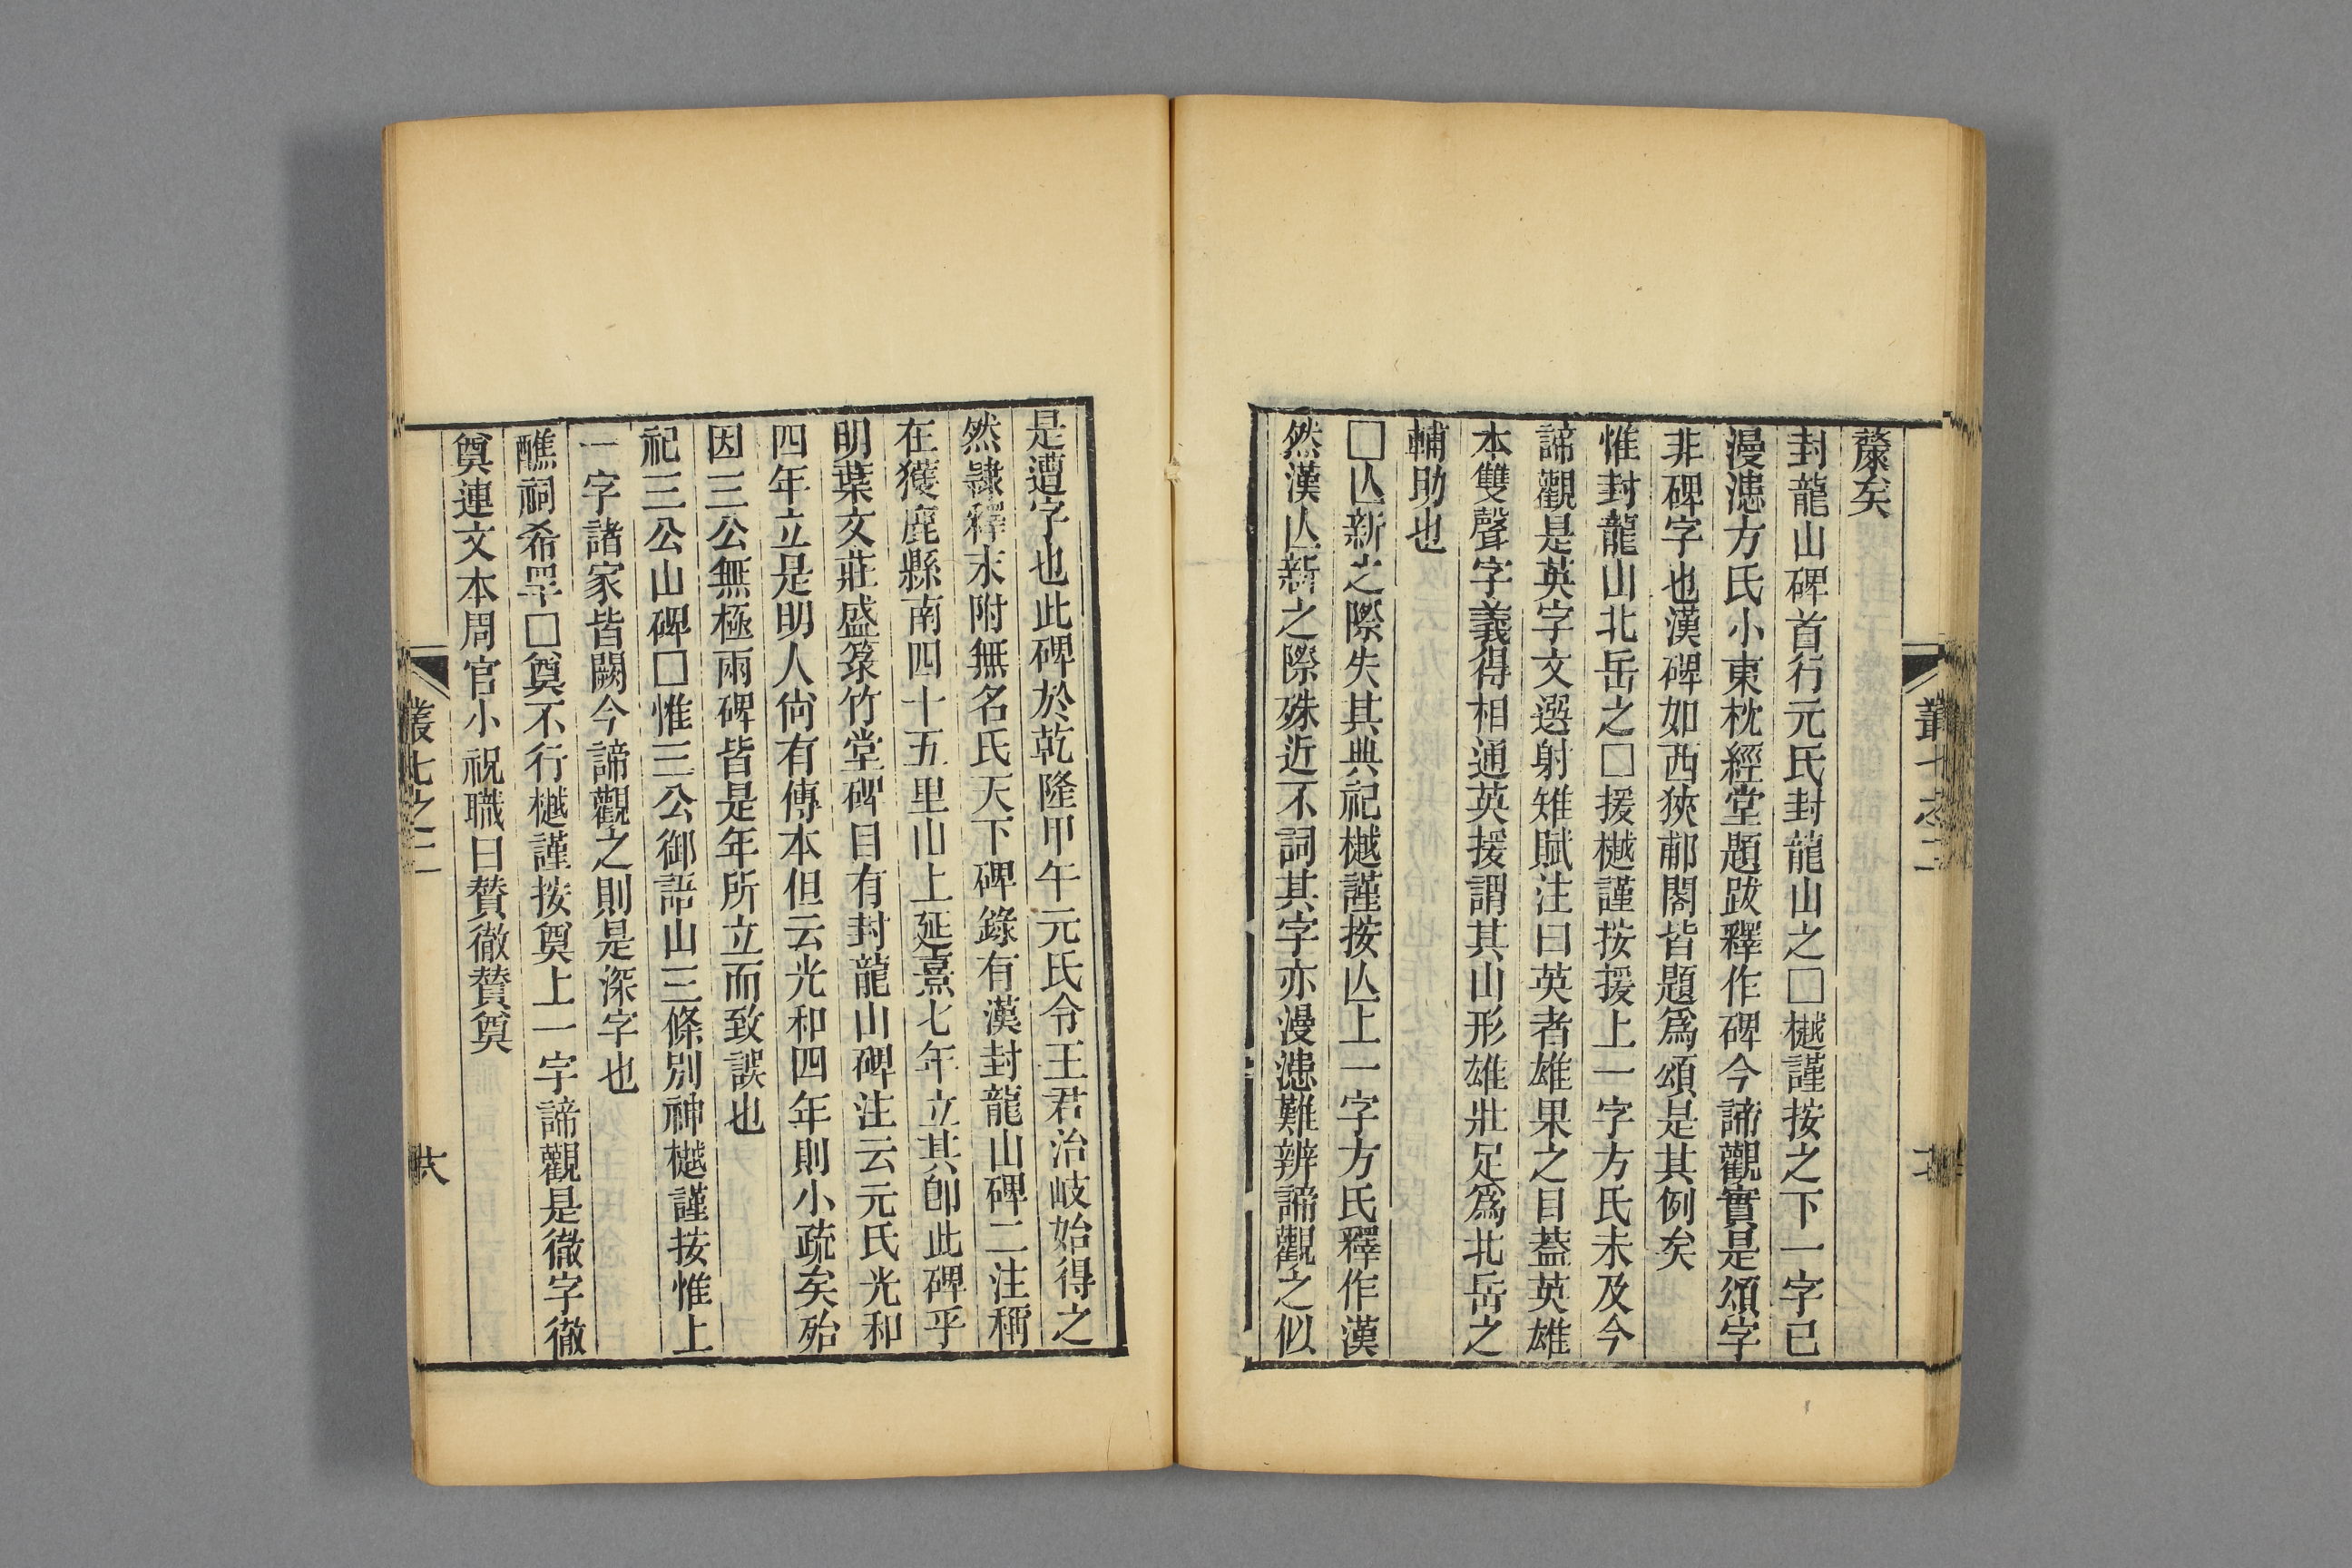 蔾矣
封龍山碑首行元氏封龍山之□樾謹按之下一字已
漫漶方氏小東枕經堂題跋釋作碑今諦觀實是頌字
非碑字也漢碑如西狹郙閣皆題爲頌是其例矣
惟封龍山北岳之□援樾謹按援上一字方氏未及今
諦觀是英字文選射雉賦注曰英者雄果之目蓋英雄
本雙聲字義得相通英援謂其山形雄壯足爲北岳之
輔助也
□亾新之際失其典祀樾謹按亾上一字方氏釋作漢
然漢亾新之際殊近不詞其字亦漫漶難辨諦觀之似
是遭字也此碑於乾隆甲午元氏令王君治岐始得之
然隷釋末附無名氏天下碑錄有漢封龍山碑二注稱
在獲鹿縣南四十五里山上延熹七年立其卽此碑乎
明葉文莊盛箓竹堂碑目有封龍山碑注云元氏光和
四年立是明人尙有傳本但云光和四年則小疏矣殆
因三公無極兩碑皆是年所立而致誤也
祀三公山碑□惟三公御語山三條別神樾謹按惟上
一字諸家皆闕今諦觀之則是深字也
醮祠希罕□奠不行樾謹按奠上一字諦觀是徹字徹
奠連文本周官小祝職曰贊徹贊奠
叢七之二
六